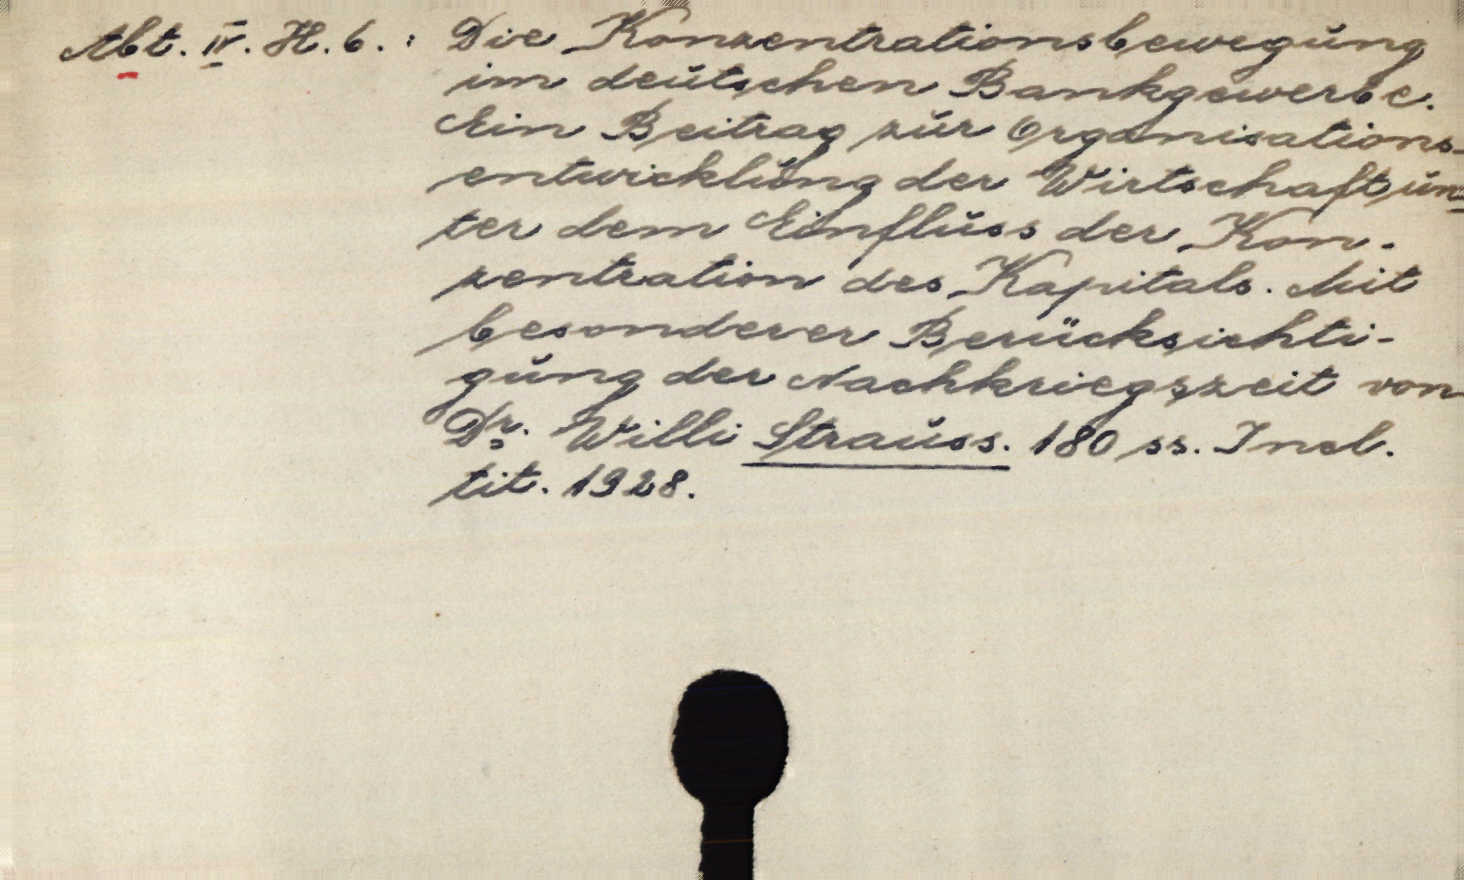 Abt. IV. H. 6. : Die Konzentrationsbewegung
im deutschen Bankgewerbe.
Ein Beitrag zur Organisations-
entwicklung der Wirtschaft un=
ter dem Einfluss der Kon-
zentration des Kapitals. Mit
besonderer Berücksichti-
gung der Nachkriegszeit von
Dr. Willi Strauss. 180 ss. Incl.
tit. 1928.